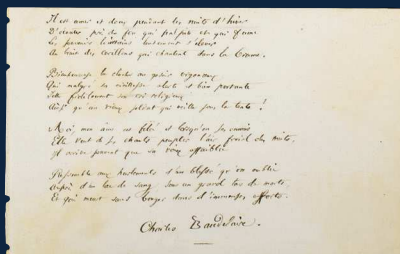 Il est amer et doux pendant les nuits d'hiver
D'écouter près du feu qui palpite et qui fume
Les souvenirs lointains lentement s'élever
Au bruit des carillons qui chantent dans la brume.
Bienheureuse la cloche au gosier vigoureux
Qui malgré sa vieillesse alerte et bien portante
Jette fidèlement son cri religieux
Ainsi qu'un vieux soldat qui veille sous la tente !
Moi, mon âme est fêlée et lorsqu'en ses ennuis
Elle veut de ses chants peupler l'air froid des nuits
Il arrive souvent que sa voix affaiblie
Ressemble aux hurlements d'un blessé qu'on oublie
Auprès d'un lac de sang, sous un grand tas de morts
Et qui meurt sans bouger dans d'immenses efforts.
Charles Baudelaire.